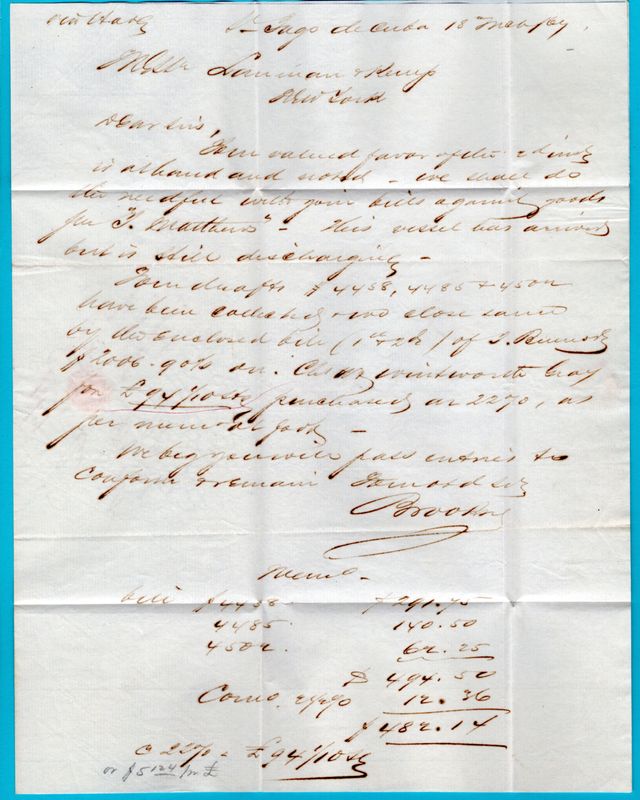 St Jago de Cuba 18
Messrs Lanman & Kemp
New York
Dear Sirs,
Your valued favor of the
is at hand and noted - we shall do
the needful with your bills against goods
per "T. Matthews" - This vessel has arrived
but is still discharging -
Your drafts # 4458, 4485 & 4502
have been collected & we close same
by the enclosed bill (1st & 2d) of
$2006.90/ on Wentworth
for £94./10 stg purchased at 22%, as
per memo at foot -
We beg you will pass entries to
conform & remain Your
Brooks
Memo -
bill #4458 $291.75
4485 140.50
4502. 62.25
$ 494.50
Como. 2½% 12.36
$ 482.14
@ 22% = £94./10 stg
or $5 124 / pr £